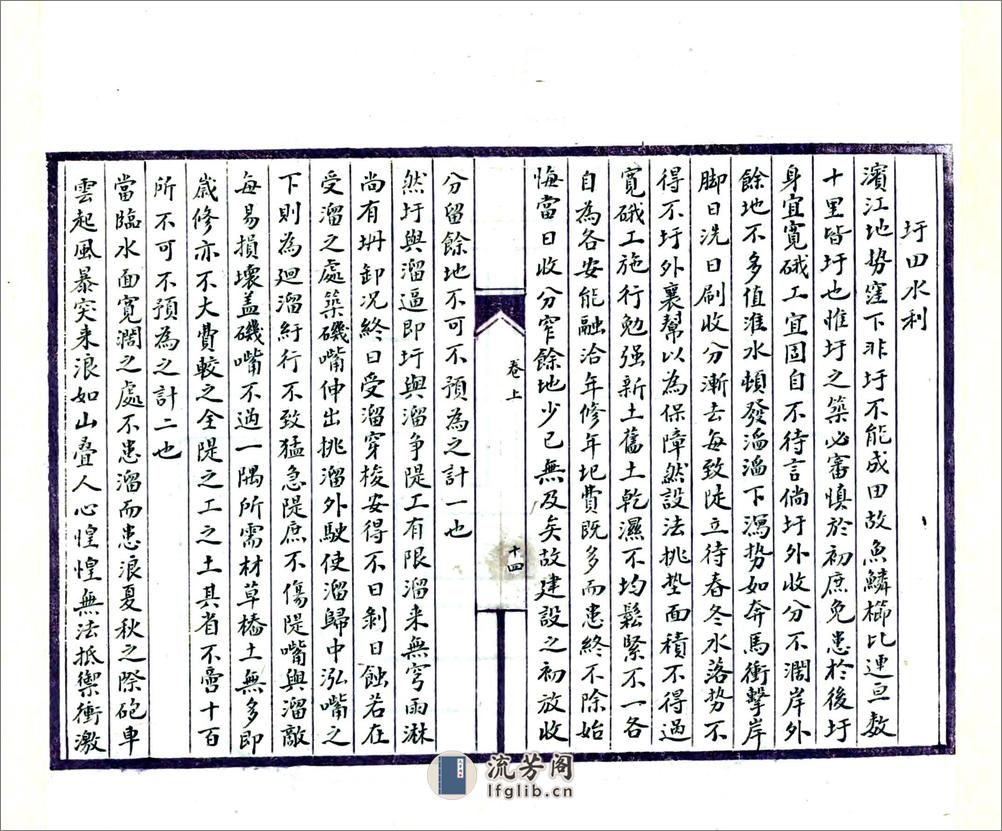 圩田水利
濱江地势窪下非圩不能成田故魚鱗櫛比連亘数
十里皆圩也惟圩之築必審慎於初庶免患於後圩
身宜寬硪工宜固自不待言倘圩外收分不濶岸外
餘地不多值淮水頓發滔滔下瀉势如奔馬衝擊岸
脚日洗日刷收分漸去每致陡立待春冬水落势不
得不圩外襄幫以為保障然設法挑垫面積不得過
寬硪工施行勉强新土舊土乾濕不均鬆緊不一各
自為各安能融洽年修年圮費既多而患終不除始
悔當日收分窄餘地少已無及矣故建設之初放收
卷上
十四
分留餘地不可不預為之計一也
然圩與溜逼即圩與溜争隄工有限溜来無穷雨淋
尚有坍卸况終日受溜穿梭安得不日剝日蝕若在
受溜之處築磯嘴伸出挑溜外駛使溜歸中泓嘴之
下則為迴溜紆行不致猛急隄庶不傷隄嘴與溜敵
每易損壞盖磯嘴不過一隅所需材草樁土無多即
歲修亦不大費較之全隄之工之土其省不啻十百
所不可不預為之計二也
當臨水面寬濶之處不患溜而患浪夏秋之際砲車
雲起風暴突来浪如山叠人心惶惶無法抵禦衝激
流芳阁
lfglib.cn